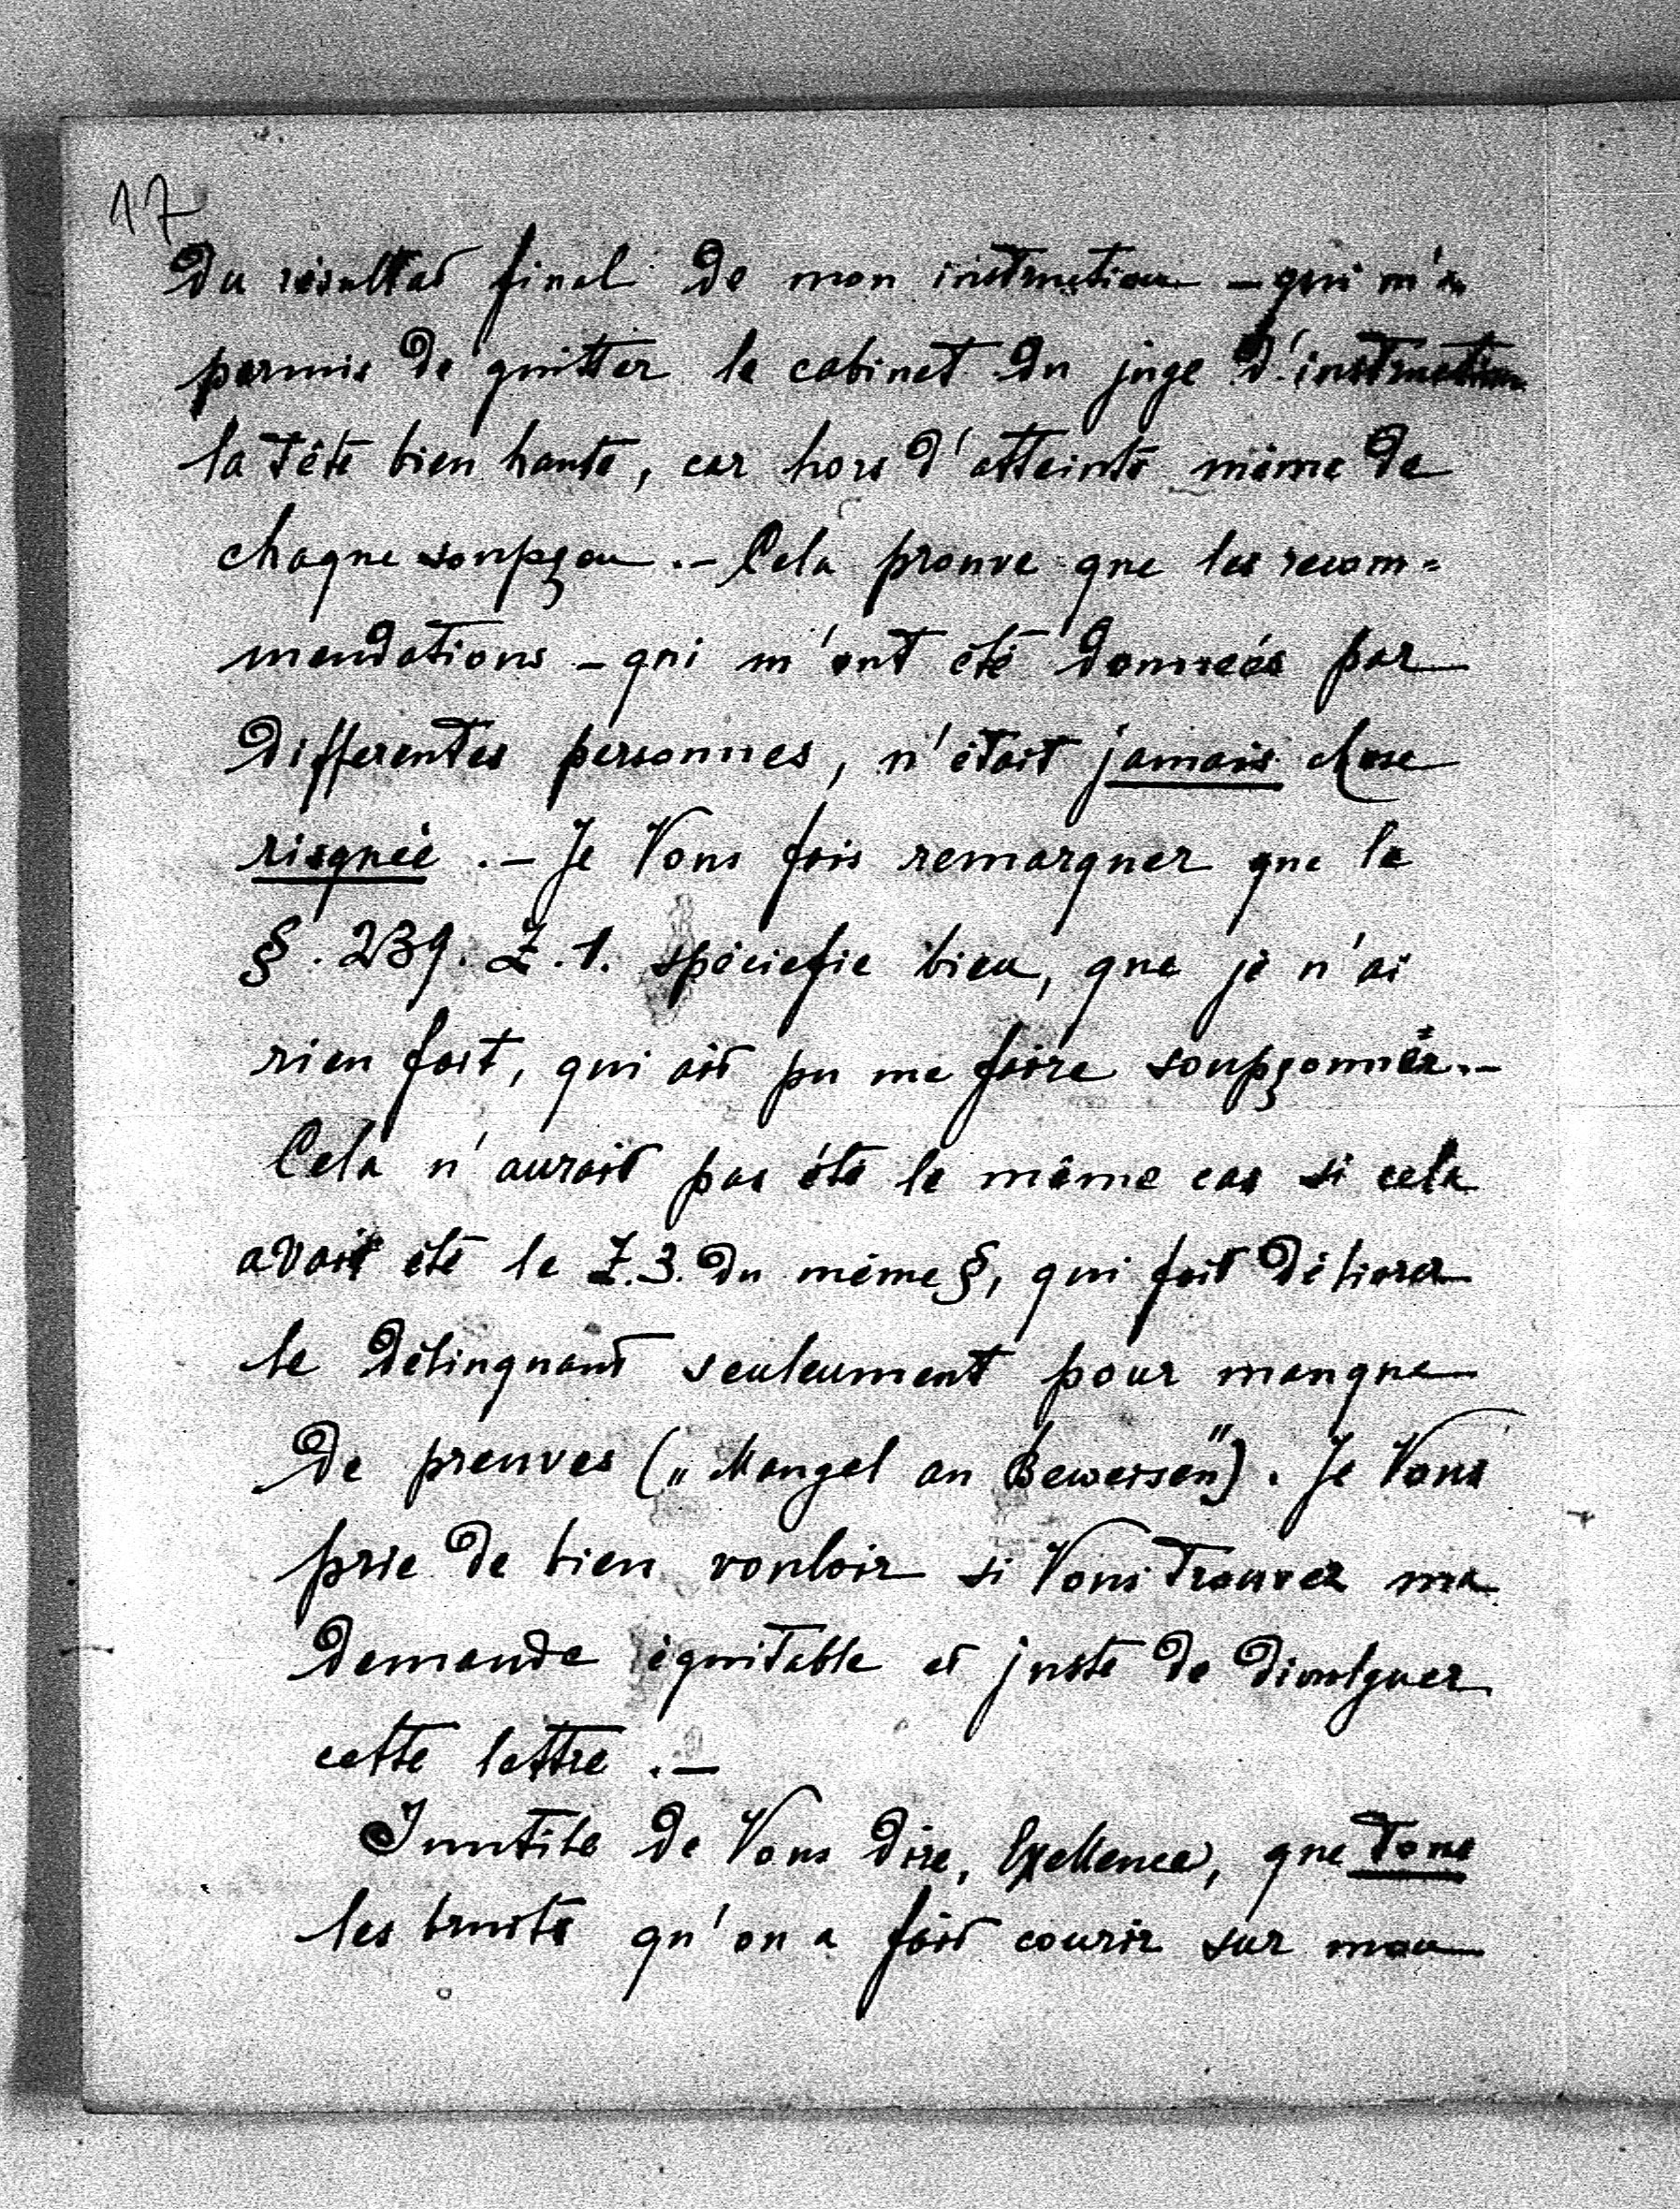 17
du résultat final de mon instruction – qui m'a
permis de quitter le cabinet du juge d'instruction
la tête bien haute, car hors d'atteinte même de
chaque soupçon .– Cela prouve que les recom=
mendations – qui m'ont été données par
differentes personnes, n'était jamais chose
risquée .– Je Vous fais remarquer que le
§. 239. Z. 1. spéciefie bien, que je n'ai
rien fait, qui ait pu me faire soupçonner.–
Cela n'aurait pas été le même cas si cela
avait été le Z. 3. du même §, qui fait délivrer
le délinquant seuleument pour manque
de preuves („Mangel an Beweisen"). Je Vous
prie de bien vouloir si Vous trouvez ma
demande équitable et juste de divulguer
cette lettre .–
Inutile de Vous dire, Exellence, que tous
les bruits qu'on a fait courir sur mon